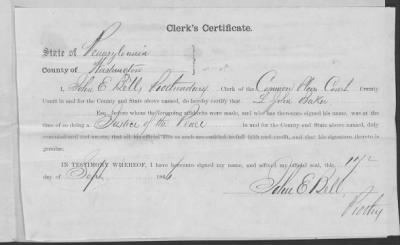 Clerk's Certificate.
State of Pennsylvania
County of Washington
I, John E Bell, Prothonotary Clerk of the Common Pleas Court County
Court in and for the County and State above named, do hereby certify that John Baker
Esq., before whom the foregoing affidavits were made, and who has thereunto signed his name, was at the
time of so doing a Justice of the Peace in and for the County and State above named, duly
commissioned and sworn; that all his official acts as such are entitled to full faith and credit, and that his signature thereto is
genuine.
IN TESTIMONY WHEREOF, I have hereunto signed my name, and affixed my official seal, this 17
day of Sept 186
John E Bell
Prothy